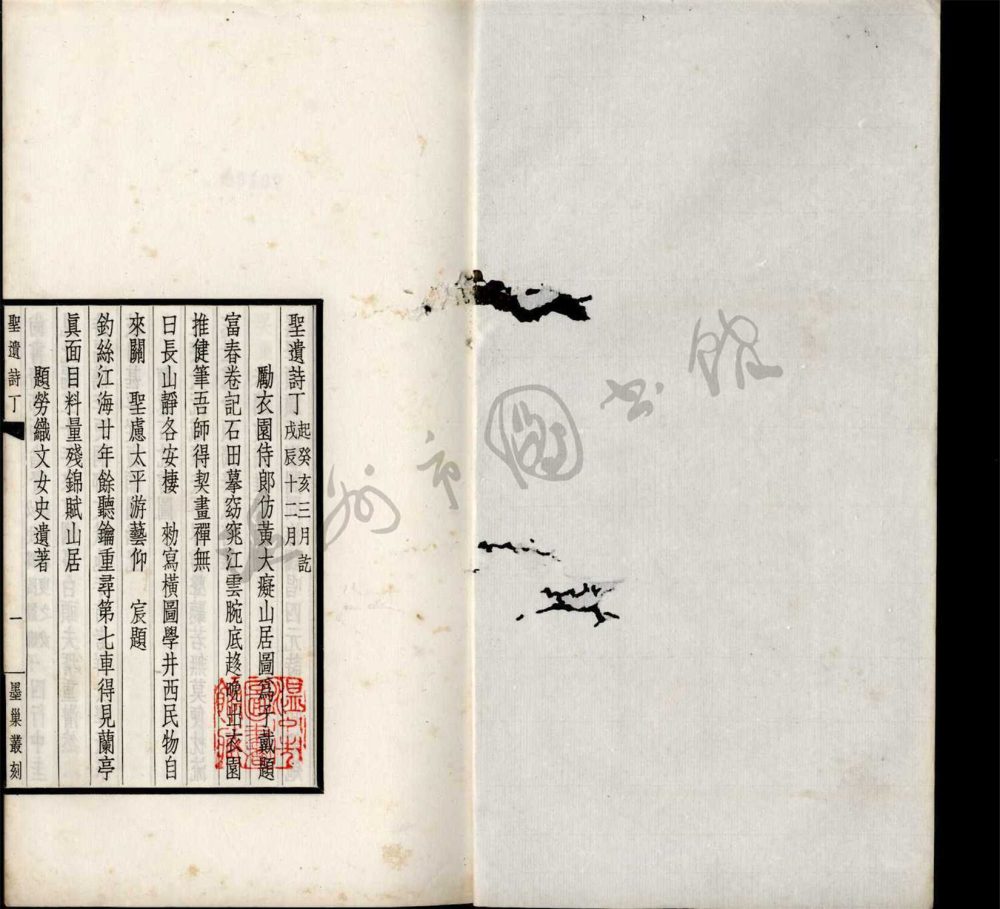 聖遺詩丁 起癸亥三月訖戌辰十二月
勵衣園侍郎仿黃大癡山居圖爲子戴題
富春卷記石田摹窈窕江雲腕底趍晚出衣園
推健筆吾師得契畫禪無
日長山靜各安棲 勑寫橫圖學井西民物自
來關 聖慮太平游藝仰 宸題
釣絲江海廿年餘聽鑰重尋第七車得見蘭亭
眞面目料量殘錦賦山居
題勞織文女史遺著
聖遺詩丁 一 墨巢叢刻
溫州市圖書館